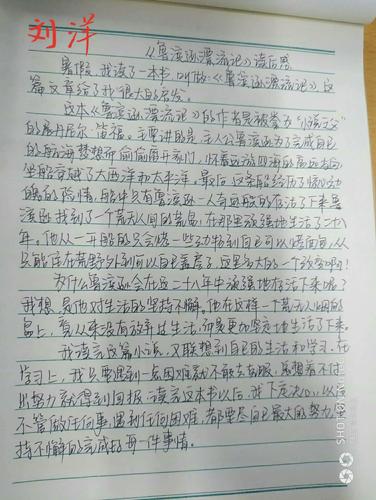 刘洋
《鲁滨逊漂流记》读后感
暑假,我读了一本书,叫做《鲁滨逊漂流记》这
篇文章给了我很大的启发。
这本《鲁滨逊漂流记》的作者是被誉为“小说之父”
的展丹尼尔·笛福。主要讲的是:主人公鲁滨逊为了完成自己
的航海梦想而偷偷离开家门,怀着远游四海的高远志向
坐船穿越了大西洋和太平洋。最后,这条船经历了惊心动
魄的险情,船中只有鲁滨逊一人奇迹般的存活了下来鲁
滨逊找到了个荒无人间的荒岛,在那里顽强地生活了二十八
年。他从一开始的只会烤一些动物到自己可以烤面包,从
只能住在荒野外到可以自己盖房子,这是多大的一个改变啊!
为什么鲁滨逊会在这二十八年中顽强地存活下来呢?
我想,是他对生活的坚持不懈。他在这样一个荒无人烟的
岛上,看从来没有放弃过生活,而是更加坚定地生活了下来。
我读完这篇小说,又联想到自己的生活和学习。在
学习上,我只要遇到一点困难就不敢去克服,总想着不付
出努力就得到回报。读完这本书以后,我下定决心,以后
不管做任何事,遇到任何困难,都要尽自己最大的努力,坚
持不懈的完成好每一件事情。
SHOT ON